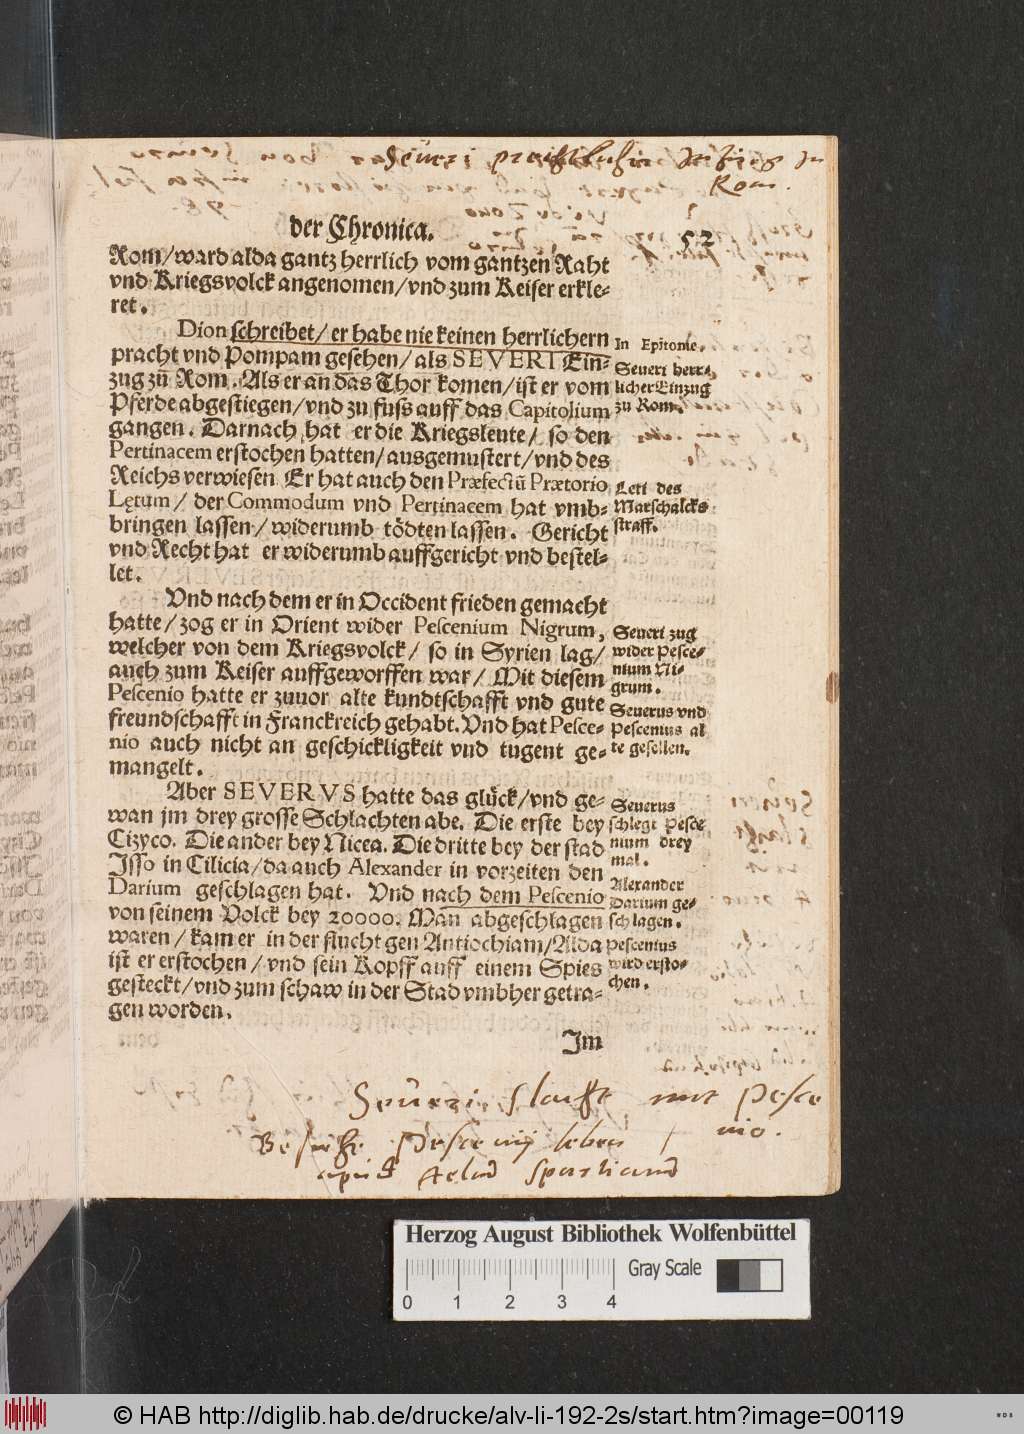 Seueri
Rom.
der Chronica.
52
Rom/ward alda gantz herrlich vom gantzen Raht
vnd Kriegsvolck angenomen/vnd zum Keiser erkle-
ret.
Dion schreibet/er habe nie keinen herrlichern
pracht vnd Pompam gesehen/als SEVERI Ein-
zug zů Rom. Als er an das Thor komen/ist er vom
Pferde abgestiegen/vnd zu fuss auff das Capitolium
gangen. Darnach hat er die Kriegsleute/ so den
Pertinacem erstochen hatten/ausgemustert/vnd des
Reichs verwiesen. Er hat auch den Præfectū Prætorio
Lętum/ der Commodum vnd Pertinacem hat vmb-
bringen lassen/widerumb tödten lassen. Gericht
vnd Recht hat er widerumb auffgericht vnd bestel-
let.
In Epitome.
Seueri herr-
licher Einzug
zu Rom.
Leti des
Marschalcks
straff.
Vnd nach dem er in Occident frieden gemacht
hatte/zog er in Orient wider Pescenium Nigrum,
welcher von dem Kriegsvolck/ so in Syrien lag/
auch zum Keiser auffgeworffen war/ Mit diesem
Pescenio hatte er zuuor alte kundtschafft vnd gute
freundschafft in Franckreich gehabt. Vnd hat Pesce-
nio auch nicht an geschickligkeit vnd tugent ge-
mangelt.
Seueri zug
wider Pesce-
nium Ni-
grum.
Seuerus vnd
Pescenius al
te gesellen.
Aber SEVERVS hatte das glück/vnd ge-
wan jm drey grosse Schlachten abe. Die erste bey
Cizyco. Die ander bey Nicea. Die dritte bey der stad
Isso in Cilicia/da auch Alexander in vorzeiten den
Darium geschlagen hat. Vnd nach dem Pescenio
von seinem Volck bey 20000. Man abgeschlagen
waren/kam er in der flucht gen Antiochiam/Alda
ist er erstochen/vnd sein Kopff auff einem Spies
gesteckt/vnd zum schaw in der Stad vmbher getra-
gen worden.
Seuerus
schlegt Pesce
nium drey
mal.
Alexander
Darium ge-
schlagen.
Pescenius
wird ersto-
chen.
Im
Seueri mit Pesce
nio.
Pescenij leben
apud Spartianum
Herzog August Bibliothek Wolfenbüttel
Gray Scale
0 1 2 3 4
© HAB http://diglib.hab.de/drucke/alv-li-192-2s/start.htm?image=00119